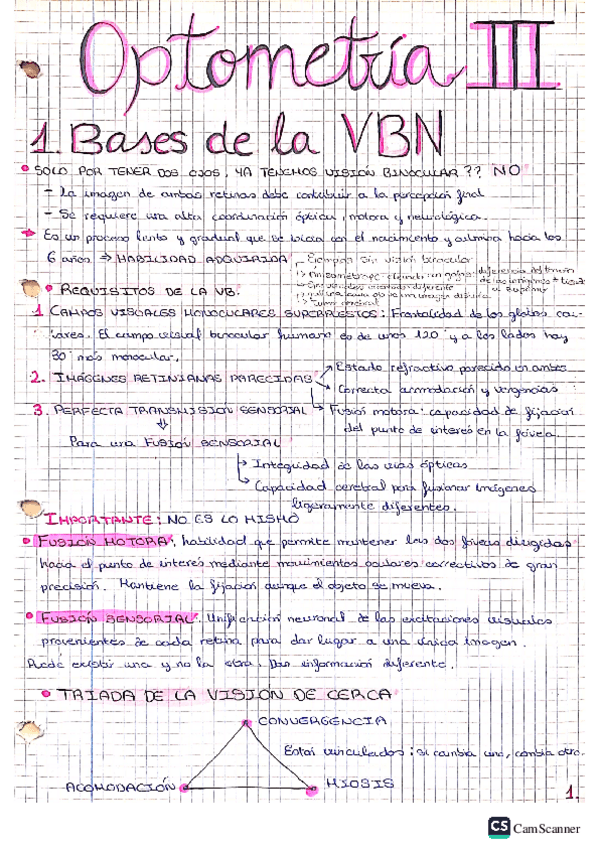 Optometría III
1. Bases de la VBN
• SOLO POR TENER DOS OJOS, YA TENEMOS VISIÓN BINOCULAR?? NO
- La imagen de ambas retinas debe contribuir a la percepción final
- Se requiere una alta coordinación óptica, motora y neurológica.
→ Es un proceso lento y gradual que se inicia con el nacimiento y culmina hacia los
6 años ⇒ HABILIDAD ADQUIRIDA
Ejemplos sin visión binocular
diferencia del tamaño
de las imágenes
• REQUISITOS DE LA VB:
1. CAMPOS VISUALES MONOCULARES SUPERPUESTOS: Frontalidad de los globos ocu-
lares. El campo visual binocular humano es de unos 120° y a los lados hay
30° más monocular.
2. IMÁGENES RETINIANAS PARECIDAS
Estado refractivo parecido en ambos
Correcta acomodación y vergencias
Fusión motora: capacidad de fijación
del punto de interés en la fóvea.
3. PERFECTA TRANSMISIÓN SENSORIAL
⇓
Para una FUSIÓN SENSORIAL
Integridad de las vías ópticas
Capacidad cerebral para fusionar imágenes
ligeramente diferentes.
IMPORTANTE: NO ES LO MISMO
• FUSIÓN MOTORA: habilidad que permite mantener las dos fóveas dirigidas
hacia el punto de interés mediante movimientos oculares correctivos de gran
precisión. Mantiene la fijación aunque el objeto se mueva.
• FUSIÓN SENSORIAL: Unificación neuronal de las excitaciones visuales
provenientes de cada retina para dar lugar a una única imagen.
Puede existir una y no la otra. Dan información diferente.
• TRIADA DE LA VISIÓN DE CERCA
CONVERGENCIA
Están vinculados: si cambia uno, cambia otro.
ACOMODACIÓN
MIOSIS
1.
CS CamScanner